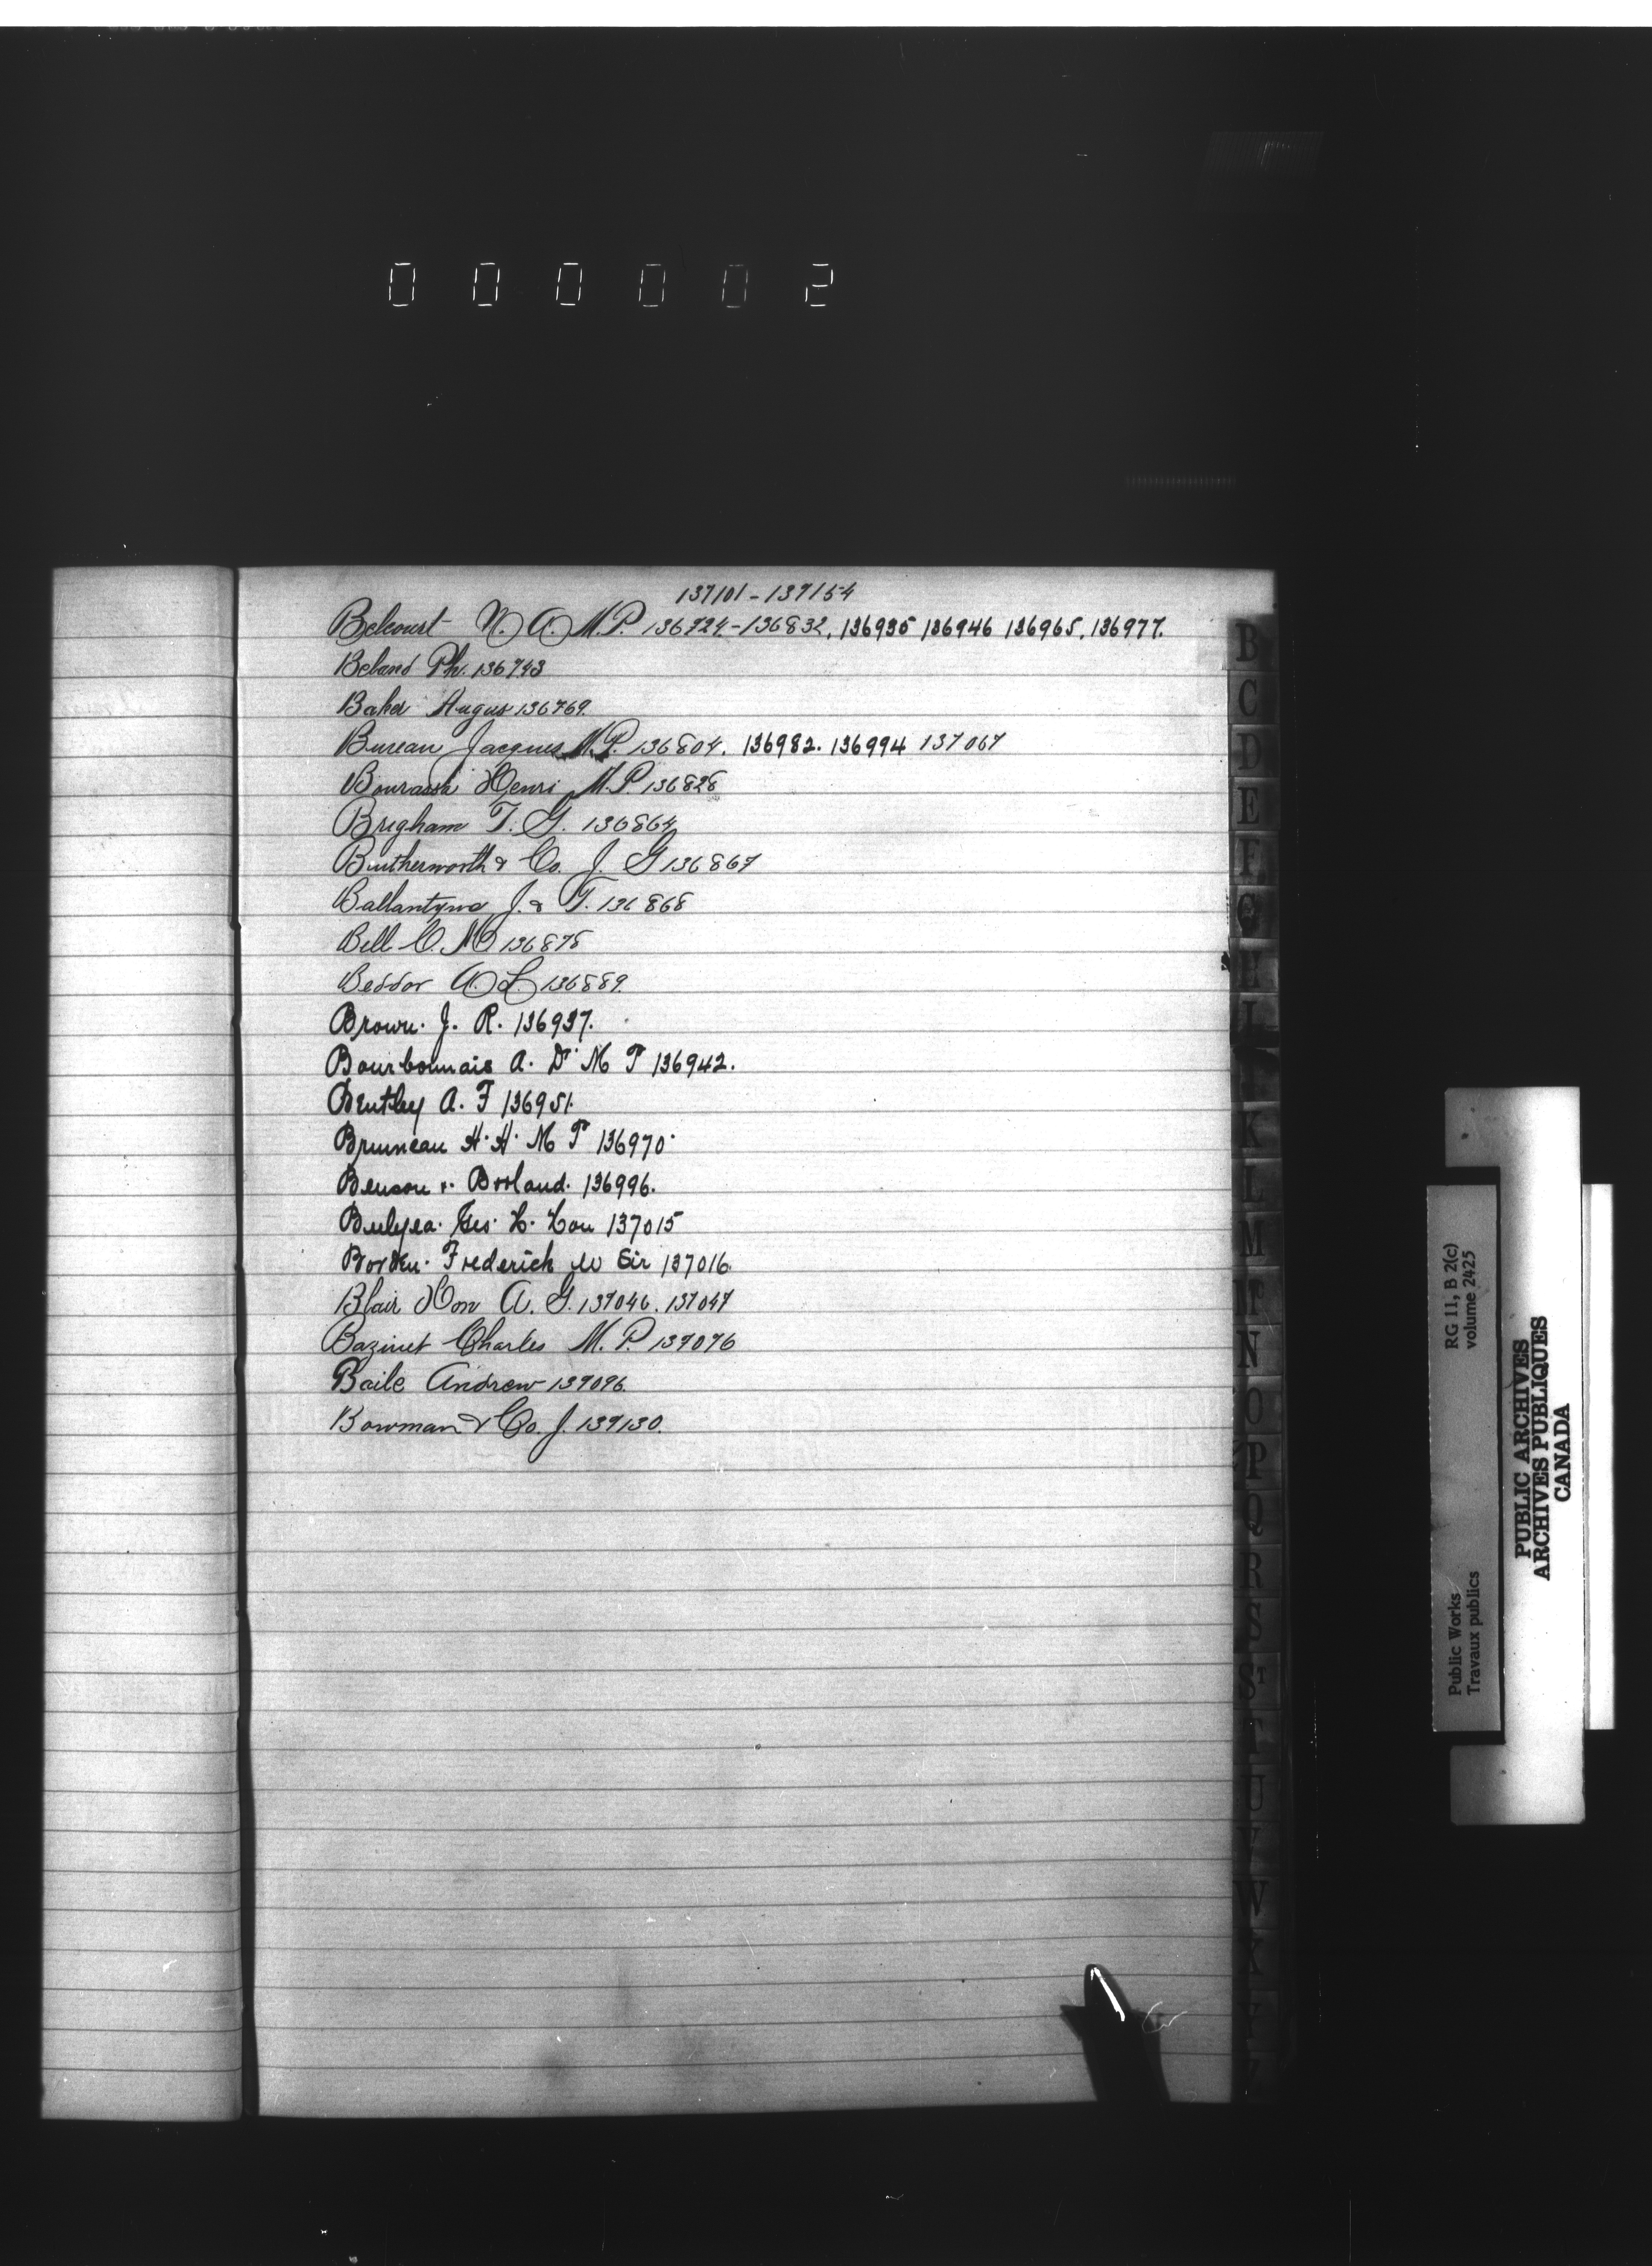 000002
137101-137154
Belcourt N. A. M.P. 136724-136832, 136935 136946 136965, 136977.
Beland Ph. 136743
Baker Angus 136769.
Bureau Jacques M.P. 136804. 136982. 136994 137067
Bourassa Henri M.P. 136828
Brigham T. G. 136864
Butherworth & Co. J. G 136867
Ballantyne J. & T. 136868
Bell C. N 136878
Beddor A. L 136889.
Brown. J. R. 136937.
Bourbonnais A. D. M P 136942.
Bentley A. F 136951.
Bruneau H. H. M P 136970.
Benson &. Borland. 136996.
Bulyea. Geo. H. Hon 137015
Borden. Frederich W Sir 137016.
Blair Hon A. G. 137046. 137047
Bazinet Charles M. P. 137076
Baile Andrew 137096.
Bowman & Co. J. 137130.
B
C
D
E
F
G
H
I
K
L
M
N
O
P
Q
R
S
ST
T
U
V
W
RG 11, B 2(c)
volume 2425
Public Works
Travaux publics
PUBLIC ARCHIVES
ARCHIVES PUBLIQUES
CANADA